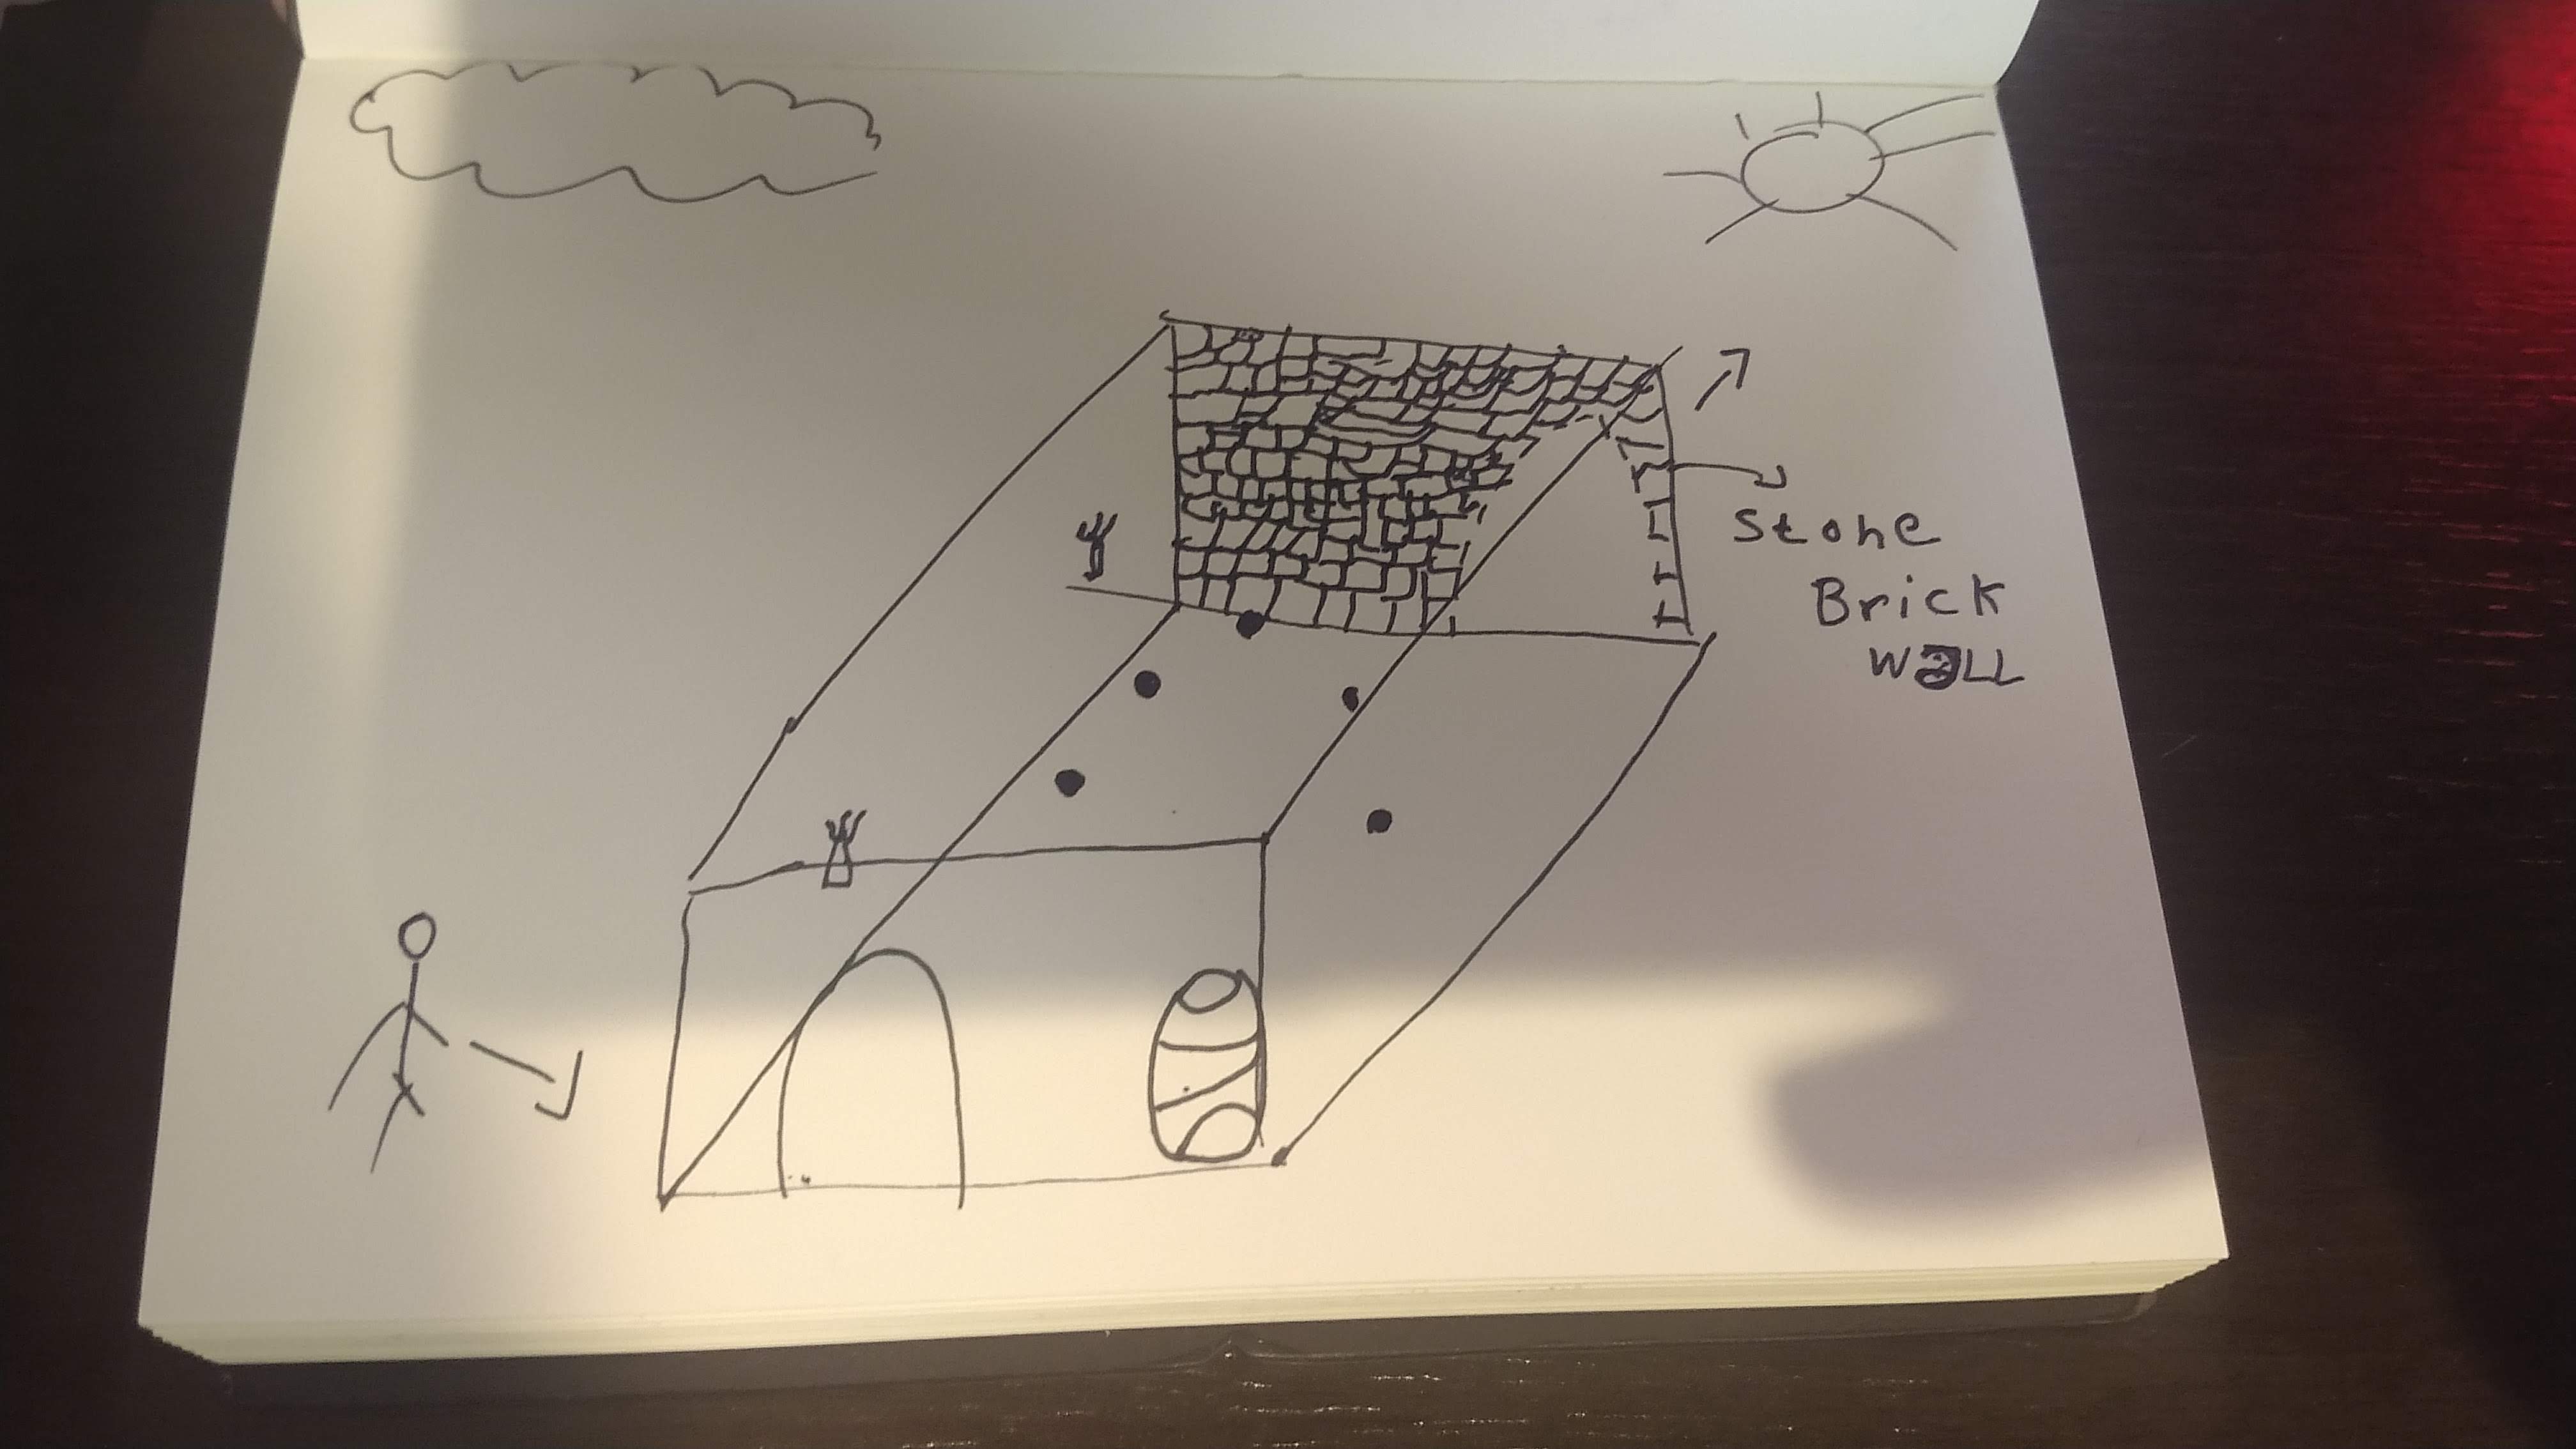 Stone
Brick
WaLL